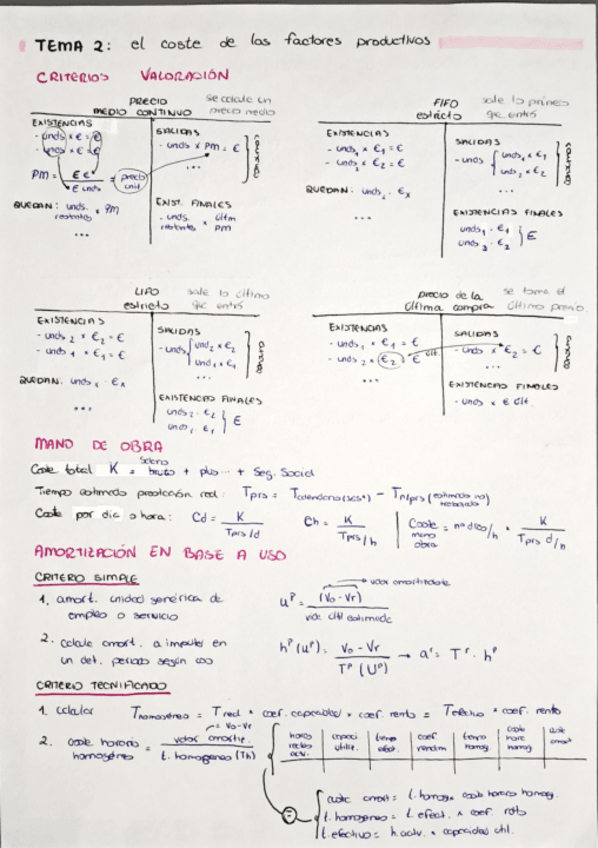 TEMA 2: el coste de los factores productivos
CRITERIOS VALORACIÓN
PRECIO MEDIO CONTINUO
se calcula un precio medio
EXISTENCIAS
- unds × € = €
- unds × € = €
PM = Σ € / Σ unds = precio unit.
QUEDAN: unds. restantes × PM
...
SALIDAS
- unds × PM = €
...
EXIST. FINALES
- unds. restantes × últm PM
FIFO estricto
sale lo primero que entró
EXISTENCIAS
- unds₁ × €₁ = €
- unds₂ × €₂ = €
QUEDAN: unds. €x
SALIDAS
- unds { unds₁ × €₁
unds₂ × €₂
...
EXISTENCIAS FINALES
unds₁ · €₁
unds₂ · €₂ } €
LIFO estricto
sale lo último que entró
EXISTENCIAS
- unds₂ × €₂ = €
- unds₁ × €₁ = €
QUEDAN: unds
...
SALIDAS
- unds { und₂ × €₂
und₁ × €₁
...
EXISTENCIAS FINALES
unds₂ · €₂
unds₁ · €₁ } €
precio de la última compra
se toma el último precio.
EXISTENCIAS
- unds₁ × €₁ = €
- unds₂ × €₂ = €
últ.
...
SALIDAS
- unds × €₂ = €
...
EXISTENCIAS FINALES
- unds × € últ.
MANO DE OBRA
Coste total K = Salario bruto + plus... + Seg. Social
Tiempo estimado prestación real: Tprs = Tcalendario (365d) - Tn/prs (estimado no trabajado)
Coste por día o hora: Cd = K / Tprs/d
Ch = K / Tprs/h
Coste mano obra = nº días/h × K / Tprs d/h
AMORTIZACIÓN EN BASE A USO
CRITERIO SIMPLE
1. amort. unidad genérica de empleo o servicio
uᵖ = (Vo - Vr) / vida útil estimada
→ valor amortizable
2. calcula amort. a imputar en un det. periodo según uso
hᵖ (uᵖ) = Vo - Vr / Tᵖ (Uᵖ) → aʳ = Tʳ · hᵖ
CRITERIO TECNIFICADO
1. calcular Thomogéneo = Treal × coef. capacidad × coef. rento = Tefectivo × coef. rento
2. coste horario homogéneo = valor amortiz. / t. homogéneo (Th)
= Vo-Vr
horas reales activ.
capaci utiliz.
tiempo efect.
coef rendim
tiempo homog.
coste hora homog
cuota amort
cuota amort = t. homog × coste horario homog.
t. homogéneo = t. efect. × coef. rdto
t. efectivo = h. activ. × capacidad util.